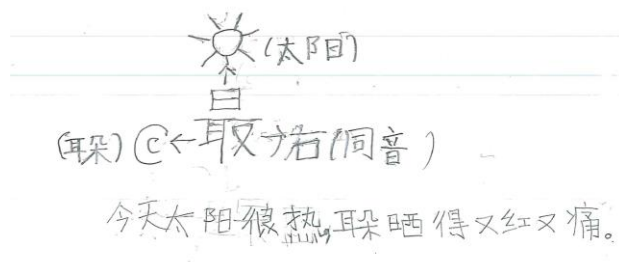 (太阳)
(耳朵) 最 右(同音)
今天太阳很热,耳朵晒得又红又痛。